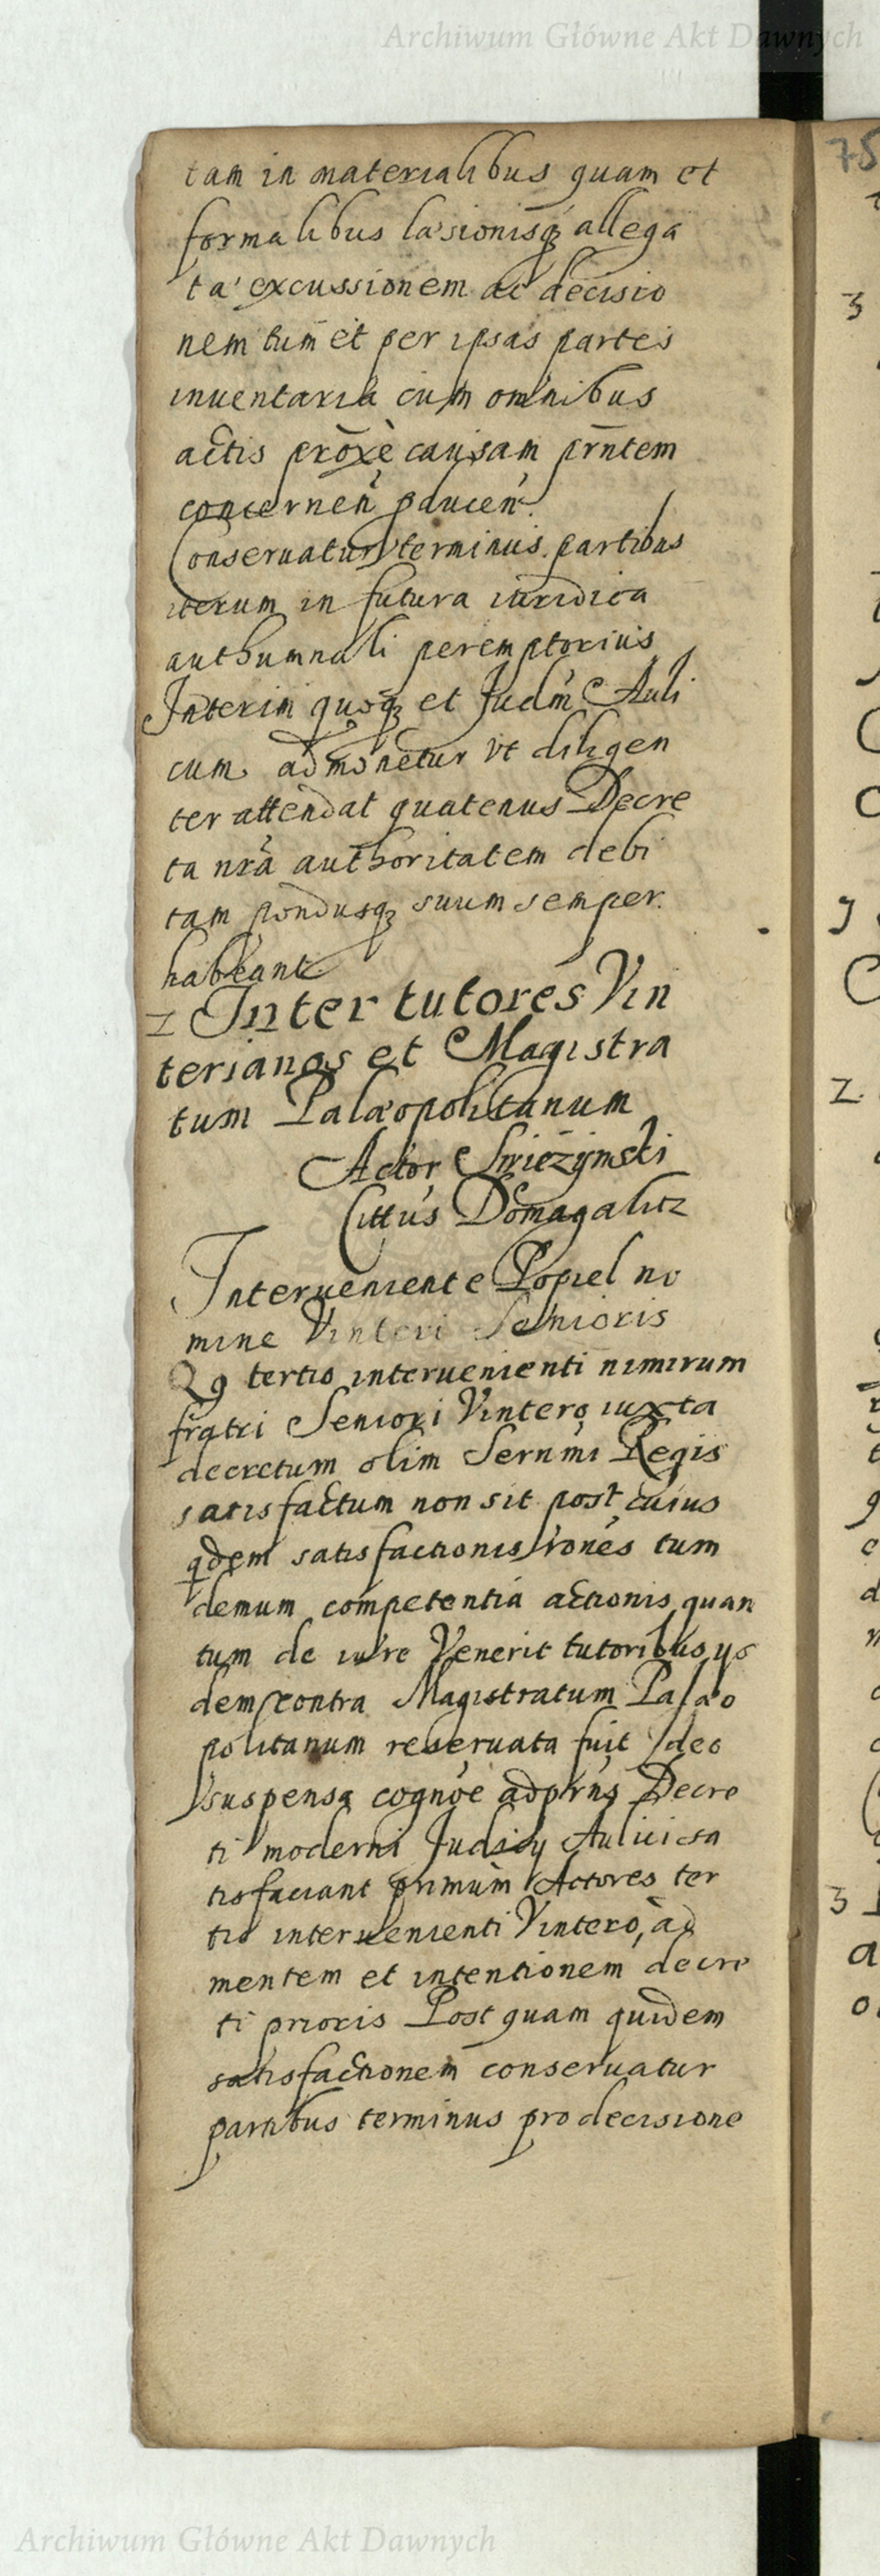 Archiwum Główne Akt Dawnych
75
tam in materialibus quam et
formalibus læsionisq; allega
ta excussionem ac decisio
nem tum et per ipsas partes
inuentaria cum omnibus
actis prōxè causam prn̄tem
concernen̄ paucen̄.
Conseruatur terminus partibus
iterum in futura iuridica
authumnali peremptorius
Interim quoq; et Judm̄ Auli
cum admonetur vt diligen
ter attendat quatenus Decre
ta nrã authoritatem debi
tam pondusq; suum semper
habeant
Z Inter tutores Vin
terianos et Magistra
tum Palæopolitanum
Actor Swiezynski
Cittus Domagalicz
Interueniente Popiel no
mine Vinteri Senioris
Q9 tertio interuenienti nimirum
fratri Seniori Vintero iuxta
decretum olim Sernmi Regis
satisfactum non sit post cuius
qdem satisfactionis rōnes tum
demum competentia actionis quan
tum de iure Venerit tutoribus ys
dem contra Magistratum Palæo
politanum reseruata fuit Ideo
suspensa cognōe ad prn̄s Decre
ti moderni Judicij Aulici sa
tisfaciant primum Actores ter
tio interuenienti Vintero, ad
mentem et intentionem decre
ti prioris Post quam quidem
satisfactionem conseruatur
partibus terminus pro decisione
Archiwum Główne Akt Dawnych